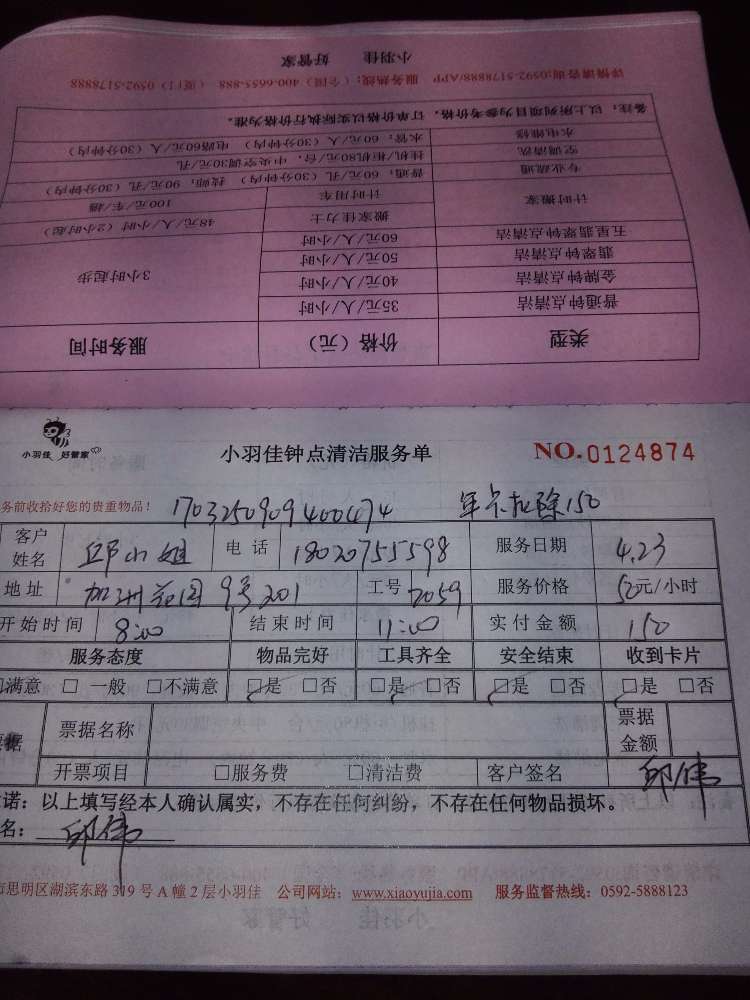 类型 价格（元） 服务时间
普通钟点清洁 35元/人/小时 3小时起步
金牌钟点清洁 40元/人/小时
翡翠钟点清洁 50元/人/小时
五星翡翠钟点清洁 60元/人/小时
计时搬家 搬家佳力士 48元/人/小时（2小时起）
计时用车 100元/车/趟
专业疏通 普通，60元/孔/（30分钟内） 技师，90元/孔/（30分钟内）
空调清洗 挂机/柜机80元/台，中央空调30元/孔
水电维修 水管：60元/人（30分钟内） 电路60元/人（30分钟内）
备注：以上所列项目为参考价格，订单价格以实际执行价格为准。
详情请咨询:0592-5178888/APP 服务热线：（全国）400-6655-888 （厦门）0592-5178888
小羽佳 好管家
小羽佳 好管家 小羽佳钟点清洁服务单 NO.0124874
务前收拾好您的贵重物品！ 1703250909400474 年卡扣除150
客户姓名 邱小姐 电话 18020755598 服务日期 4.23
地址 加洲花园9号201 工号 2059 服务价格 50元/小时
开始时间 8:00 结束时间 11:00 实付金额 150
服务态度 物品完好 工具齐全 安全结束 收到卡片
满意 □ 一般 □不满意 □是 □否 □是 □否 □是 □否 □是 □否
票据名称 票据金额
开票项目 □服务费 □清洁费 客户签名 邱伟
诺：以上填写经本人确认属实，不存在任何纠纷，不存在任何物品损坏。
名：邱伟
市思明区湖滨东路319号A幢2层小羽佳 公司网站：www.xiaoyujia.com 服务监督热线：0592-5888123